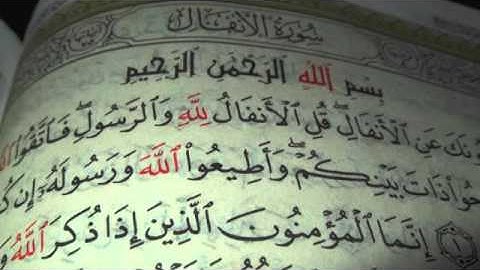 سُورَةُ الأَنفَالِ
بِسْمِ ٱللَّهِ ٱلرَّحْمَٰنِ ٱلرَّحِيمِ
ونَكَ عَنِ ٱلْأَنفَالِ ۖ قُلِ ٱلْأَنفَالُ لِلَّهِ وَٱلرَّسُولِ ۖ فَٱتَّقُوا۟
حُوا۟ ذَاتَ بَيْنِكُمْ ۖ وَأَطِيعُوا۟ ٱللَّهَ وَرَسُولَهُۥٓ إِن
۝١ إِنَّمَا ٱلْمُؤْمِنُونَ ٱلَّذِينَ إِذَا ذُكِرَ ٱللَّهُ